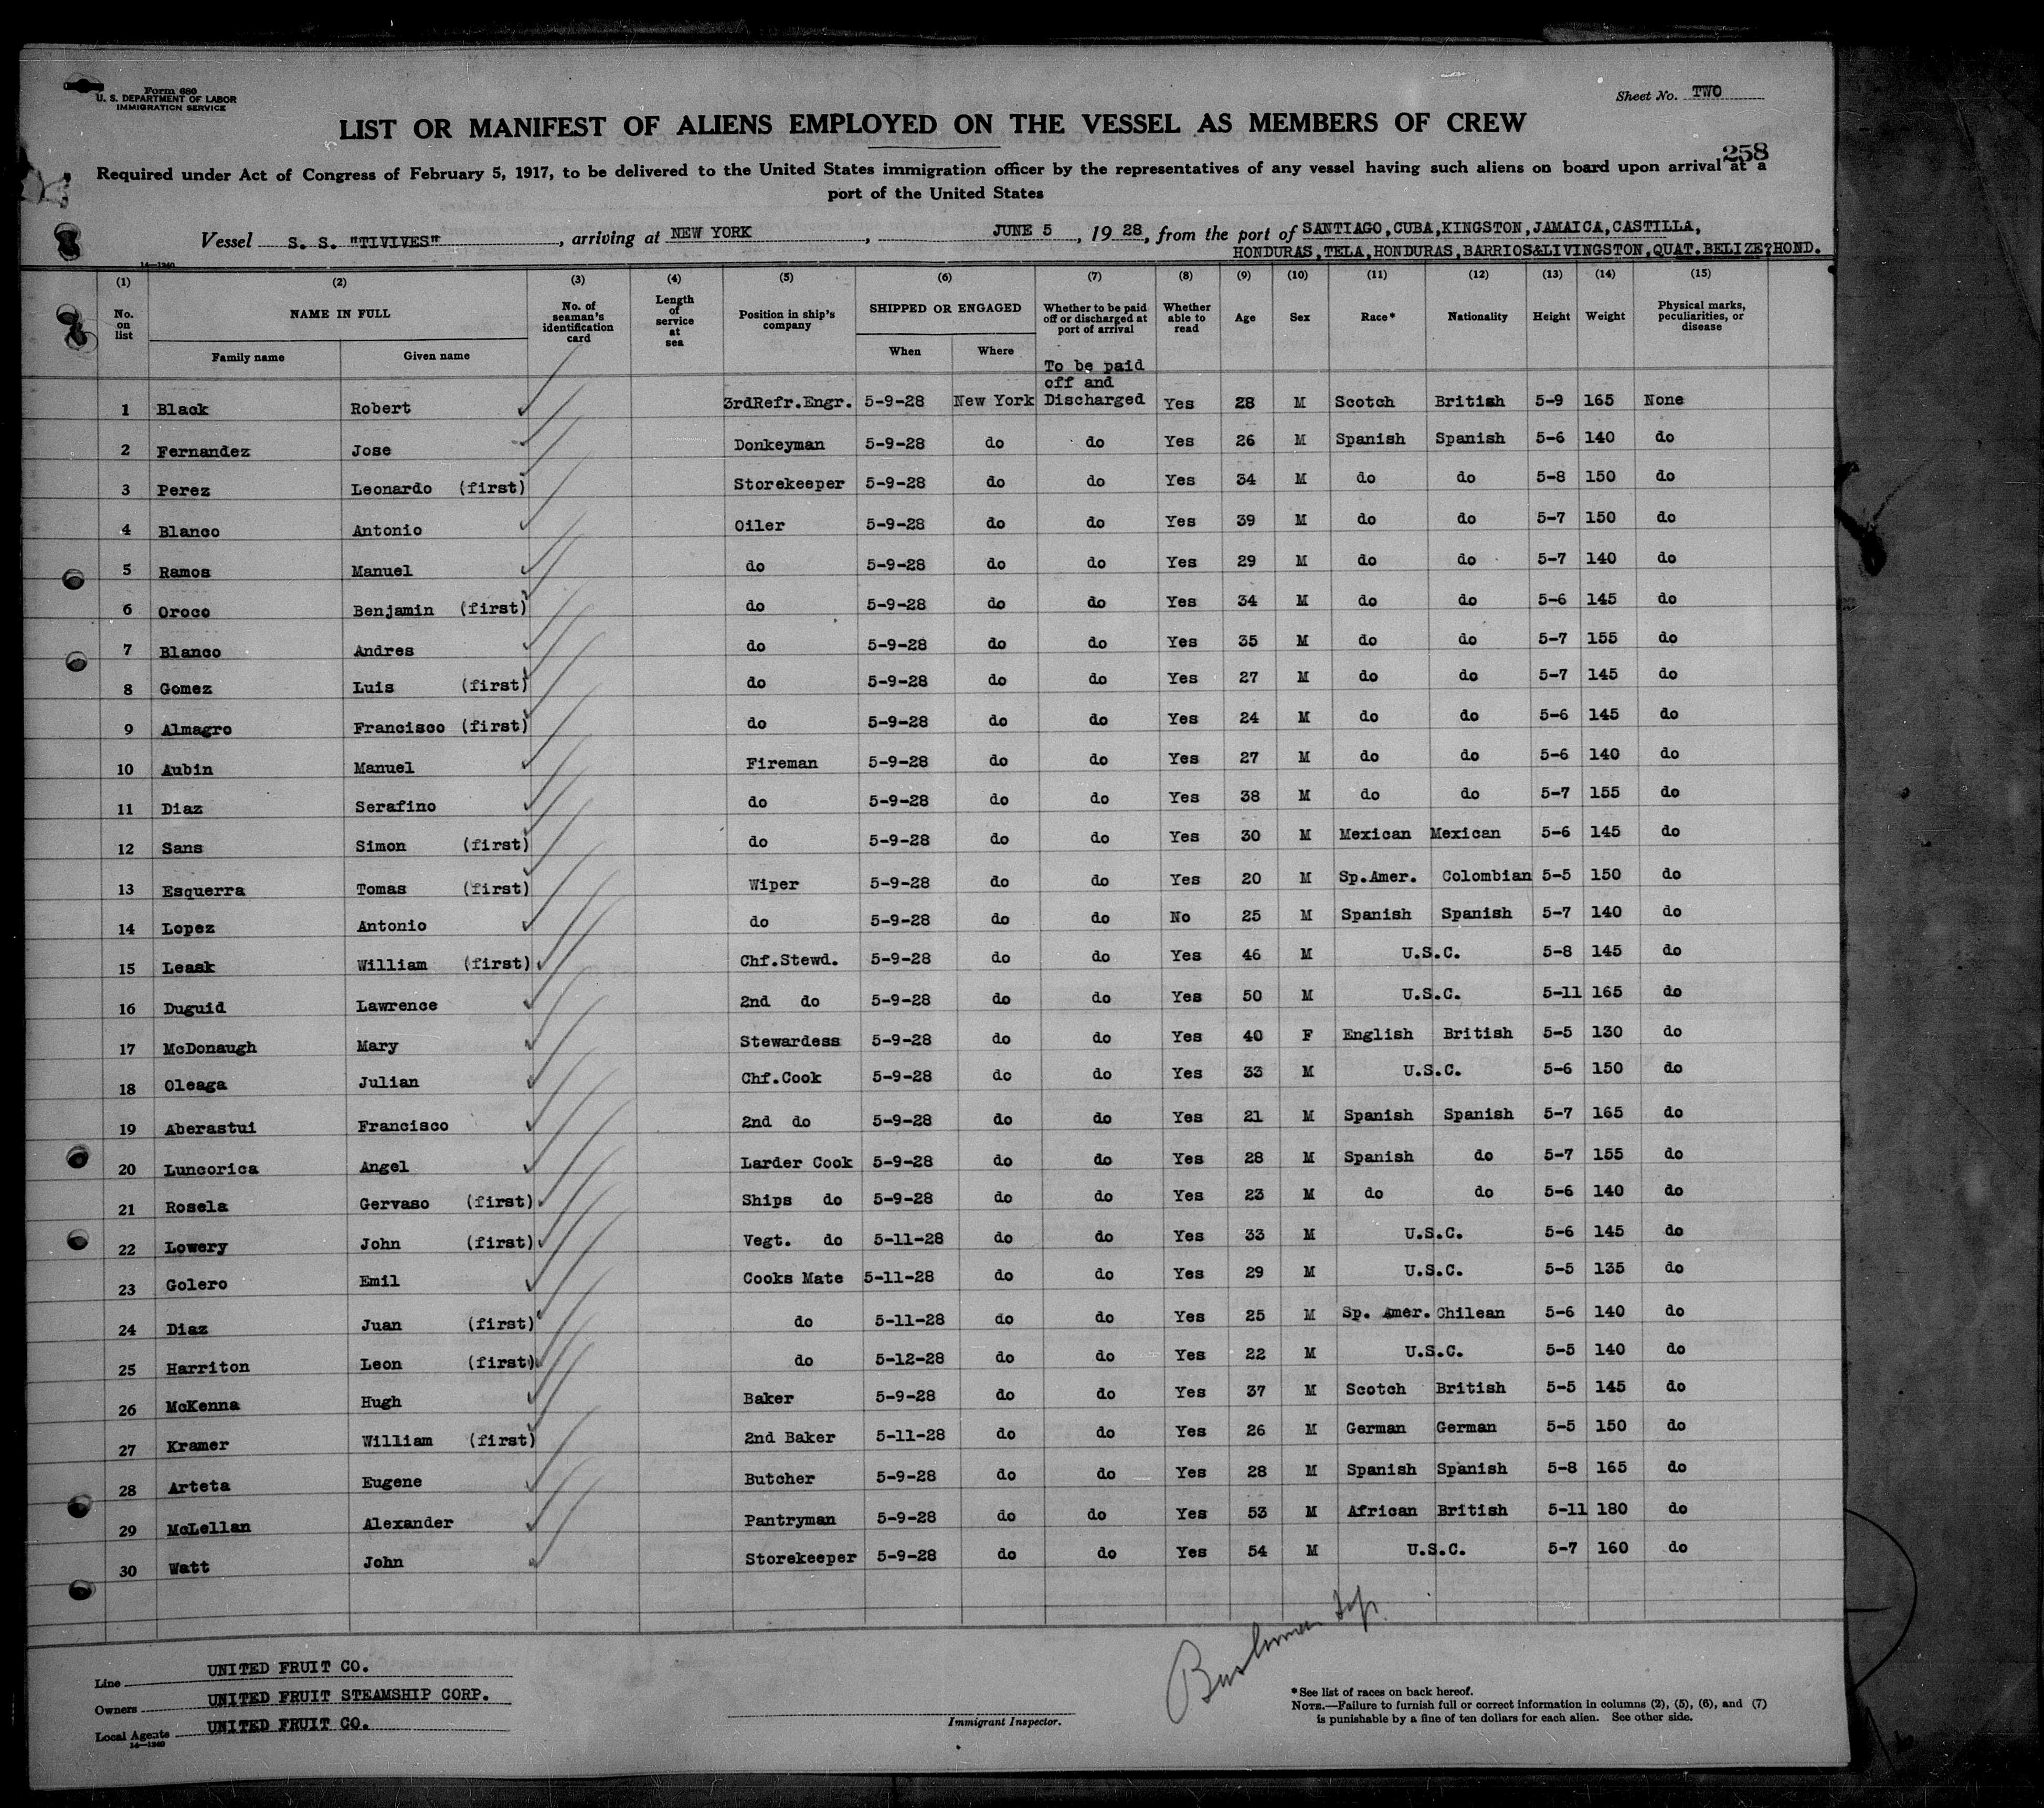 Form 680
U. S. DEPARTMENT OF LABOR
IMMIGRATION SERVICE
Sheet No. TWO
LIST OR MANIFEST OF ALIENS EMPLOYED ON THE VESSEL AS MEMBERS OF CREW
258
Required under Act of Congress of February 5, 1917, to be delivered to the United States immigration officer by the representatives of any vessel having such aliens on board upon arrival at a
port of the United States
Vessel S. S. "TIVIVES", arriving at NEW YORK, JUNE 5, 1928, from the port of SANTIAGO,CUBA,KINGSTON,JAMAICA,CASTILLA,
HONDURAS,TELA,HONDURAS,BARRIOS&LIVINGSTON,QUAT.BELIZE?HOND.
14—1240
(1) (2) (3) (4) (5) (6) (7) (8) (9) (10) (11) (12) (13) (14) (15)
No. on list NAME IN FULL No. of seaman's identification card Length of service at sea Position in ship's company SHIPPED OR ENGAGED Whether to be paid off or discharged at port of arrival Whether able to read Age Sex Race* Nationality Height Weight Physical marks, peculiarities, or disease
Family name Given name When Where
To be paid
off and
1 Black Robert 3rdRefr.Engr. 5-9-28 New York Discharged Yes 28 M Scotch British 5-9 165 None
2 Fernandez Jose Donkeyman 5-9-28 do do Yes 26 M Spanish Spanish 5-6 140 do
3 Perez Leonardo (first) Storekeeper 5-9-28 do do Yes 34 M do do 5-8 150 do
4 Blanco Antonio Oiler 5-9-28 do do Yes 39 M do do 5-7 150 do
5 Ramos Manuel do 5-9-28 do do Yes 29 M do do 5-7 140 do
6 Oroco Benjamin (first) do 5-9-28 do do Yes 34 M do do 5-6 145 do
7 Blanco Andres do 5-9-28 do do Yes 35 M do do 5-7 155 do
8 Gomez Luis (first) do 5-9-28 do do Yes 27 M do do 5-7 145 do
9 Almagro Francisco (first) do 5-9-28 do do Yes 24 M do do 5-6 145 do
10 Aubin Manuel Fireman 5-9-28 do do Yes 27 M do do 5-6 140 do
11 Diaz Serafino do 5-9-28 do do Yes 38 M do do 5-7 155 do
12 Sans Simon (first) do 5-9-28 do do Yes 30 M Mexican Mexican 5-6 145 do
13 Esquerra Tomas (first) Wiper 5-9-28 do do Yes 20 M Sp.Amer. Colombian 5-5 150 do
14 Lopez Antonio do 5-9-28 do do No 25 M Spanish Spanish 5-7 140 do
15 Leask William (first) Chf.Stewd. 5-9-28 do do Yes 46 M U.S.C. 5-8 145 do
16 Duguid Lawrence 2nd do 5-9-28 do do Yes 50 M U.S.C. 5-11 165 do
17 McDonaugh Mary Stewardess 5-9-28 do do Yes 40 F English British 5-5 130 do
18 Oleaga Julian Chf.Cook 5-9-28 do do Yes 33 M U.S.C. 5-6 150 do
19 Aberastui Francisco 2nd do 5-9-28 do do Yes 21 M Spanish Spanish 5-7 165 do
20 Luncorica Angel Larder Cook 5-9-28 do do Yes 28 M Spanish do 5-7 155 do
21 Rosela Gervaso (first) Ships do 5-9-28 do do Yes 23 M do do 5-6 140 do
22 Lowery John (first) Vegt. do 5-11-28 do do Yes 33 M U.S.C. 5-6 145 do
23 Golero Emil Cooks Mate 5-11-28 do do Yes 29 M U.S.C. 5-5 135 do
24 Diaz Juan (first) do 5-11-28 do do Yes 25 M Sp. Amer. Chilean 5-6 140 do
25 Harriton Leon (first) do 5-12-28 do do Yes 22 M U.S.C. 5-5 140 do
26 McKenna Hugh Baker 5-9-28 do do Yes 37 M Scotch British 5-5 145 do
27 Kramer William (first) 2nd Baker 5-11-28 do do Yes 26 M German German 5-5 150 do
28 Arteta Eugene Butcher 5-9-28 do do Yes 28 M Spanish Spanish 5-8 165 do
29 McLellan Alexander Pantryman 5-9-28 do do Yes 53 M African British 5-11 180 do
30 Watt John Storekeeper 5-9-28 do do Yes 54 M U.S.C. 5-7 160 do
Line UNITED FRUIT CO.
Owners UNITED FRUIT STEAMSHIP CORP.
Local Agents UNITED FRUIT CO.
14—1240
Immigrant Inspector.
*See list of races on back hereof.
NOTE.—Failure to furnish full or correct information in columns (2), (5), (6), and (7)
is punishable by a fine of ten dollars for each alien. See other side.